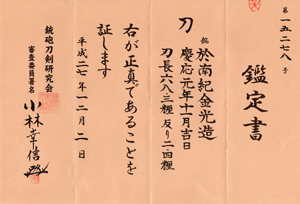 第一五二七八号
鑑定書
刀 銘 於南紀金光造
慶応元年十一月吉日
刃長六八・三糎 反り二・四糎
右が正真であることを
証します
平成二七年一二月二日
銃砲刀剣研究会
審査委員署名
小林幸信